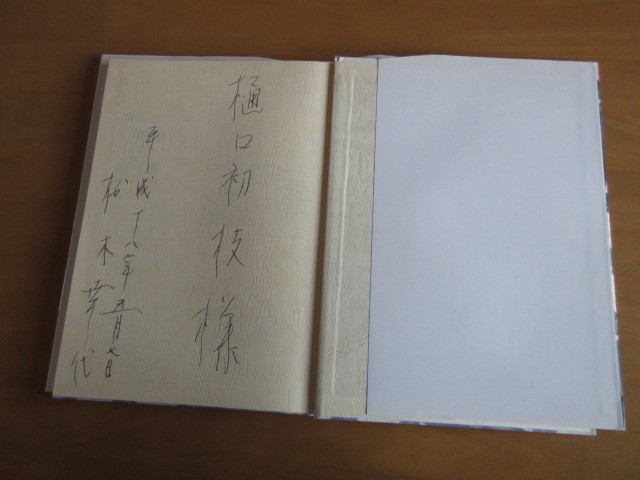 樋口初枝様
平成十八年五月七日
松木幸代